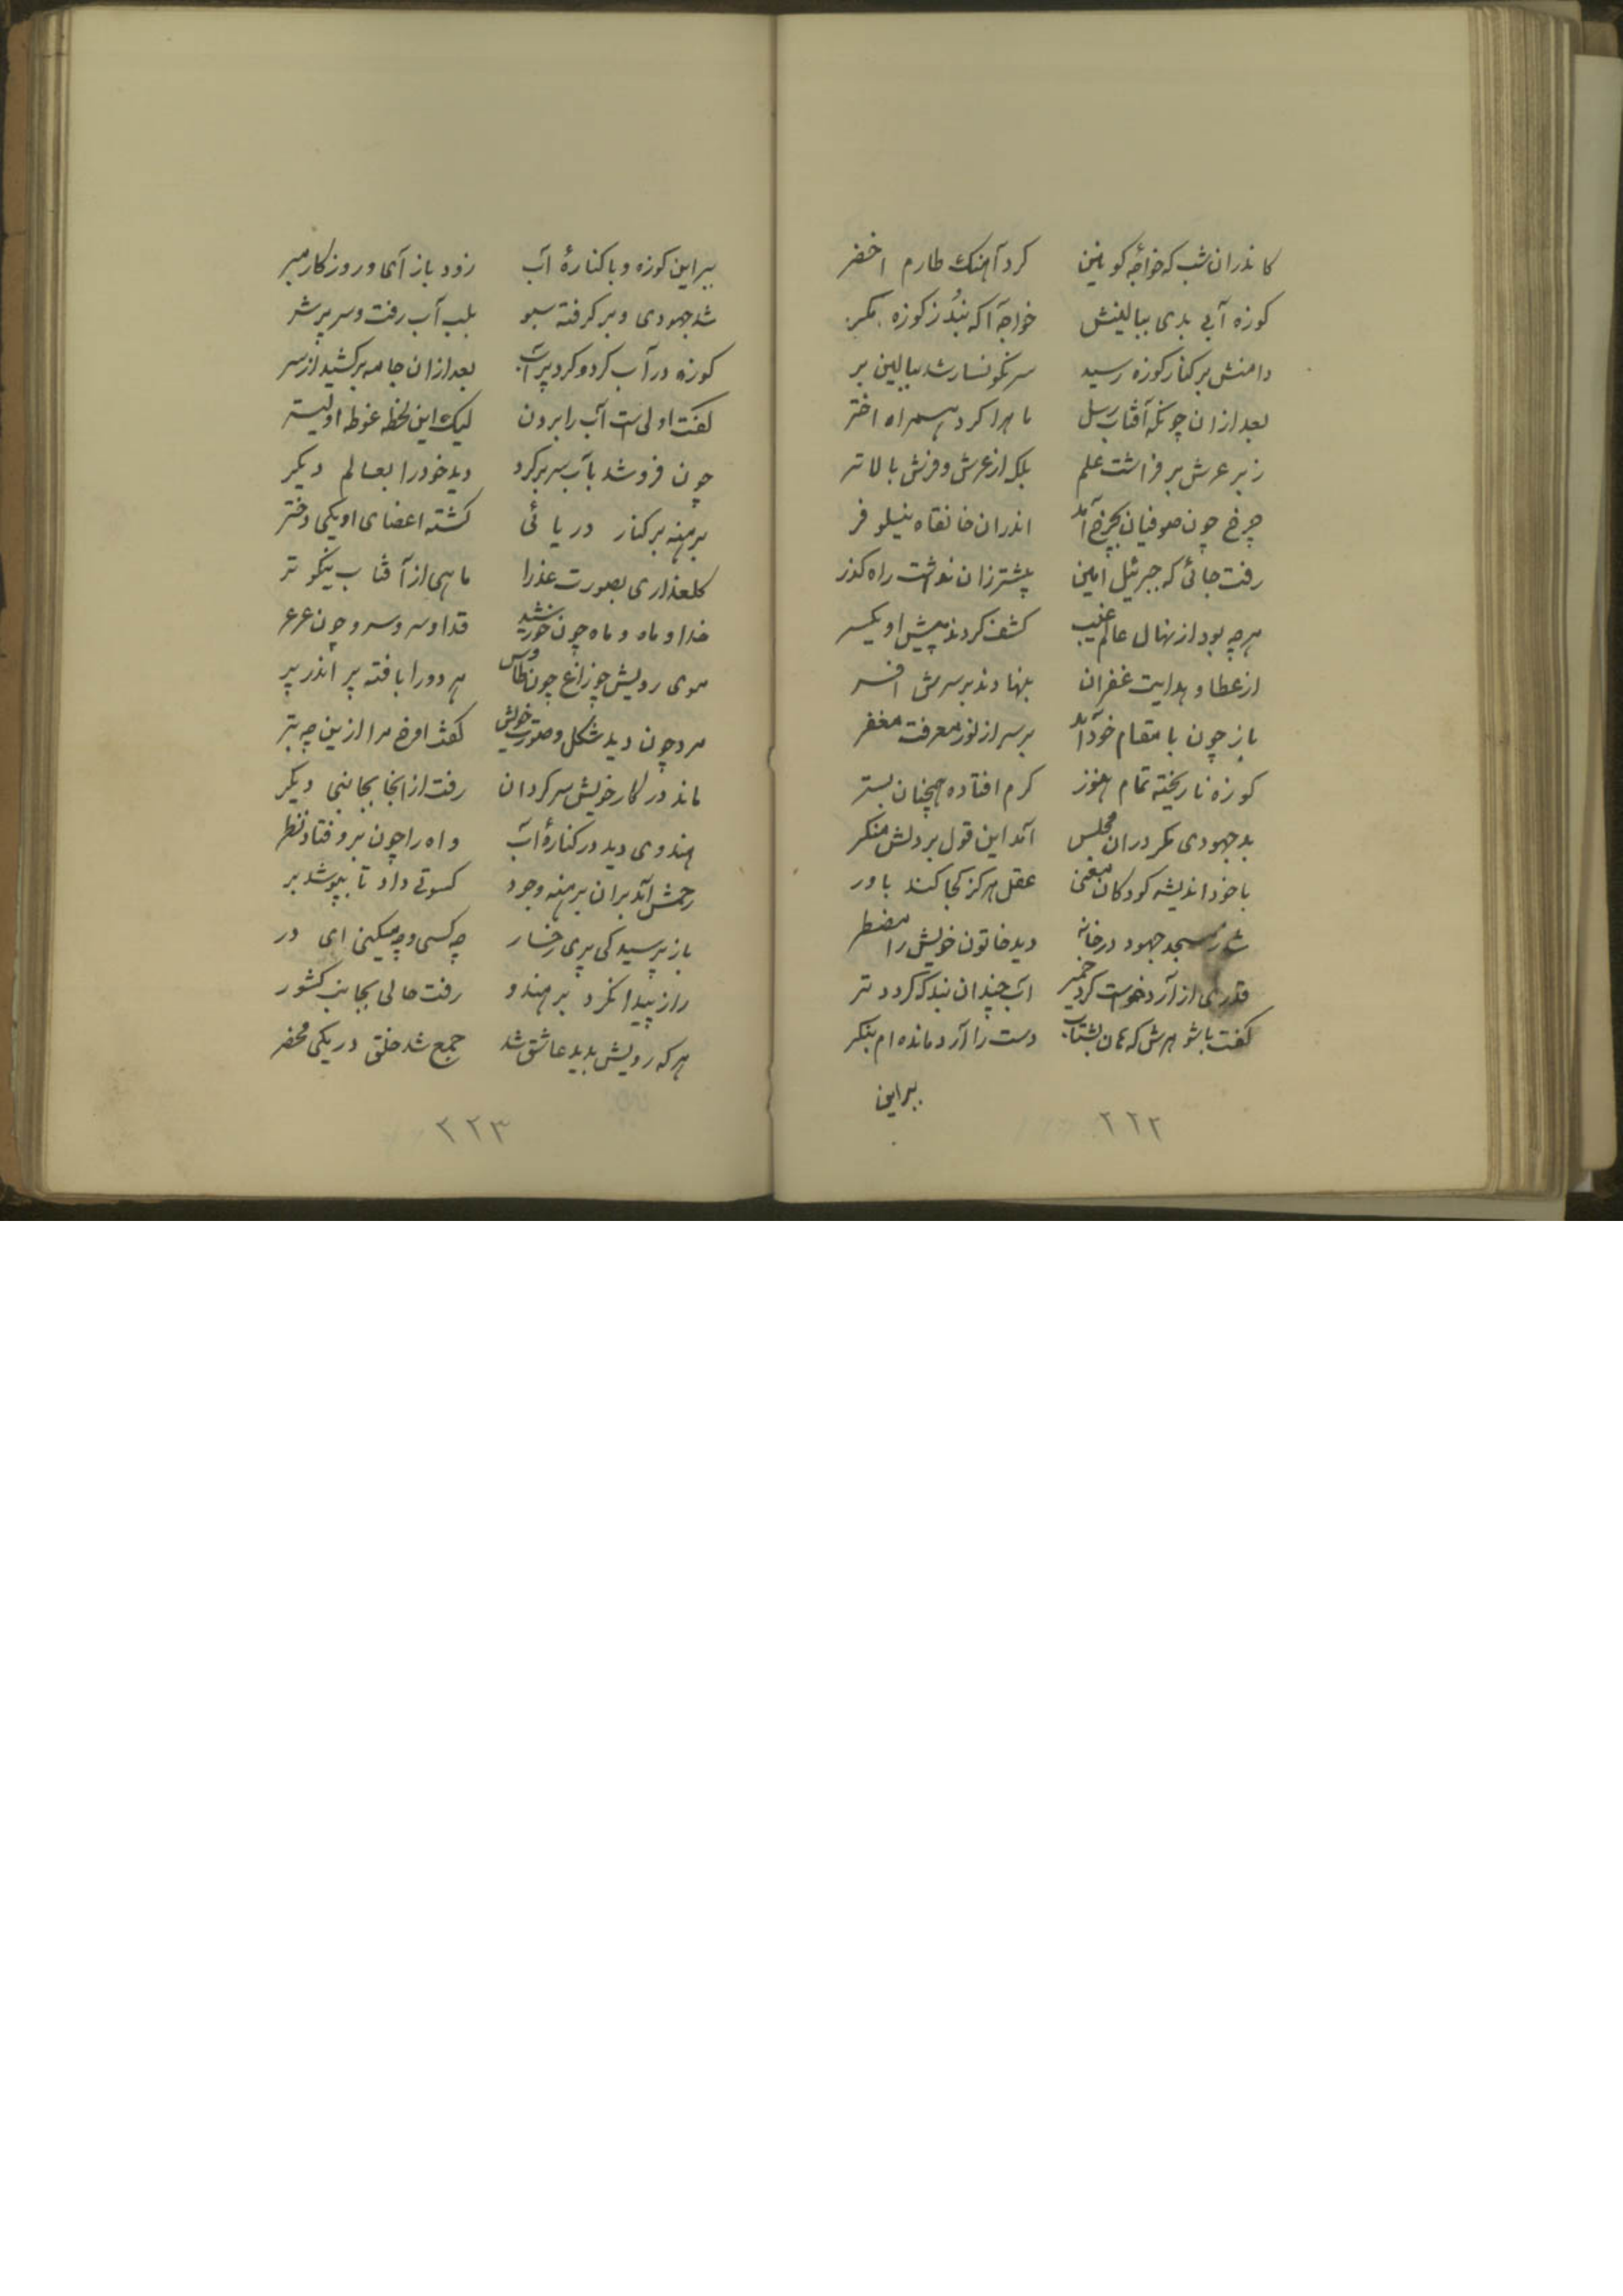 کاندران شب که خواجه کونین کرد آهنک طارم اخضر
کوزه آبی بدی ببالینش خواجه آکه نبد ز کوزه مکر
دامنش بر کنار کوزه رسید سرنکونسار شد ببالین بر
بعد ازان چونکه آفتاب رسل ماه را کرد همراه اختر
زبر عرش بر فراشت علم بلک از عرش و فرش بالاتر
چرخ چون صوفیان بچرخ آمد اندران خانقاه نیلوفر
رفت جائی که جبرئیل امین پیشتر زان نداشت راه کذر
هرچه بود از نهال عالم غیب کشف کردند پیش او یکسر
از عطا و هدایت غفران بنهادند بر سرش افسر
باز چون با مقام خود آمد بر سر از نور معرفت مغفر
کوزه نا ریخته تمام هنوز کرم افتاده همچنان بستر
بد جهودی مکر دران مجلس آمد این قول بر دلش منکر
با خود اندیشه کرد کان معنی عقل هرکز کجا کند باور
شد ز مسجد جهود در خانه دید خاتون خویش را مضطر
قدری از آرد خواست کرد خمیر آب چندان نبد که کردد تر
کفت با شوهرش که هان بشتاب دست را آرد مانده ام بنکر
ببر این
۲۲۲
ببر این کوزه و با کنارهٔ آب زود باز آی و روزکار مبر
شد جهودی و بر کرفته سبو بلب آب رفت و سر پر شر
کوزه در آب کرد و کرد پر آب بعد ازان جامه برکشید از سر
کفت اولی است آب را بردن لیک این لحظه غوطه اولیتر
چون فرو شد بآب سر بر کرد دید خود را بعالم دیکر
برهنه بر کنار دریائی کشته اعضای او یکی دختر
کلعذاری بصورت عذرا ماهی از آفتاب نیکوتر
خد او ماه و ماه چون خورشید قد او سرو و سرو چون عرعر
موی رویش چو زاغ چون طاوس هر دو را بافته پر اندر پر
مرد چون دید شکل و صورت خویش کفت اوخ مرا ازین چه بتر
ماند در کار خویش سرکردان رفت از انجا بجانبی دیکر
هندوی دید در کنارهٔ آب واه را چون برو فتاد نظر
رحمش آمد بران برهنه وجود کسوتی داد تا بپوشد بر
باز پرسید کی پری رخسار چه کسی وچه میکنی ای در
راز پیدا نکرد بر هندو رفت حالی بجانب کشور
هر که رویش بدید عاشق شد جمع شد خلق در یکی محضر
۲۲۳